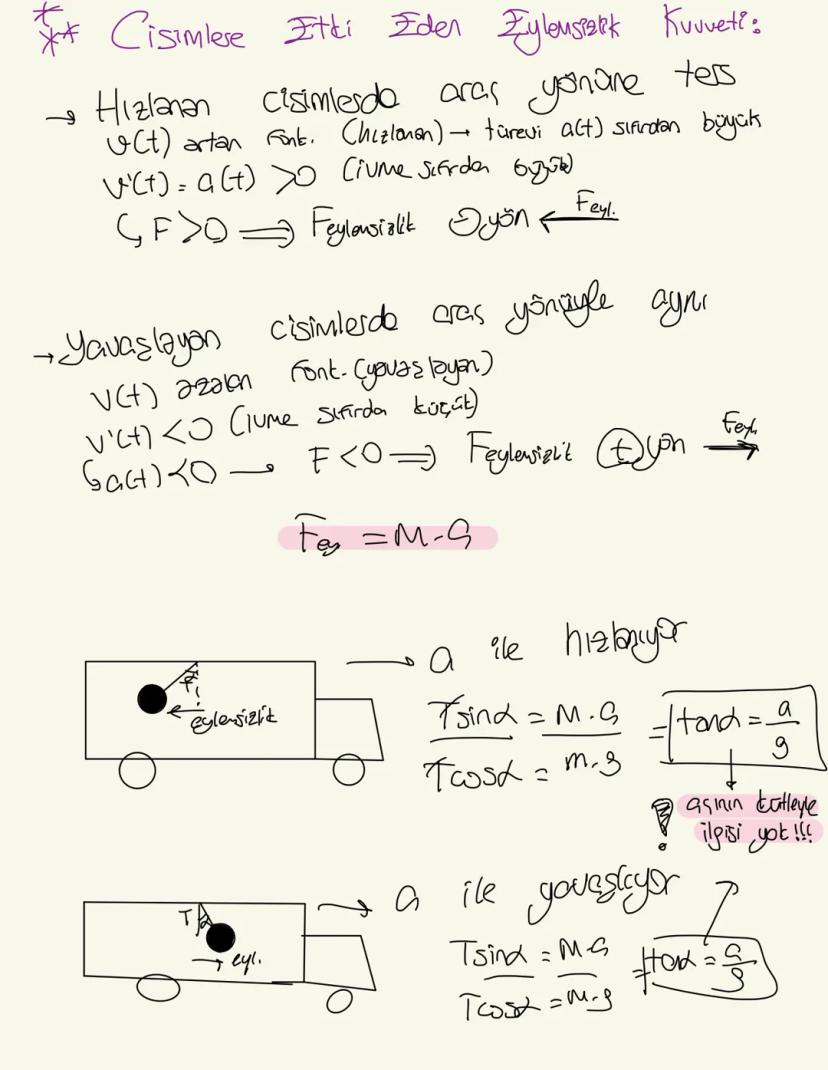 *** Cisimlere Etki Eden Eylemsizlik Kuvveti:
→ Hızlanan cisimlerde araç yönüne ters
v(t) artan font. (hızlanan) → türevi a(t) sıfırdan büyük
v'(t) = a(t) >0 (ivme sıfırdan büyük)
↳ F>0 ⟹ Feylemsizlik ⊖yön ← Feyl.
→ Yavaşlayan cisimlerde araç yönüyle aynı
V(t) azalan font. (yavaşlayan)
v'(t) <0 (ivme sıfırdan küçük)
↳a(t)<0 → F<0 ⟹ Feylemsizlik ⊕yön → Feyl.
Fey = m.a
→ a ile hızlanıyor
Tsinα = m.a
Tcosα = m.g
= tanα = a/g
T
eylemsizlik
! açının kütleyle
ilgisi yok!!!
→ a ile yavaşlıyor
T α
→ eyl.
Tsinα = m.a
Tcosα = m.g
= tanα = a/g